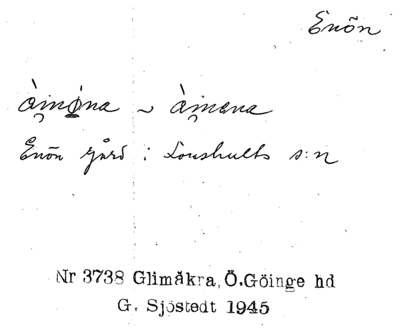 Enön
ài̯nǿna ~ ài̯nena
Enön gård i Lönshults s:n
Nr 3738 Glimåkra, Ö.Göinge hd
G. Sjöstedt 1945